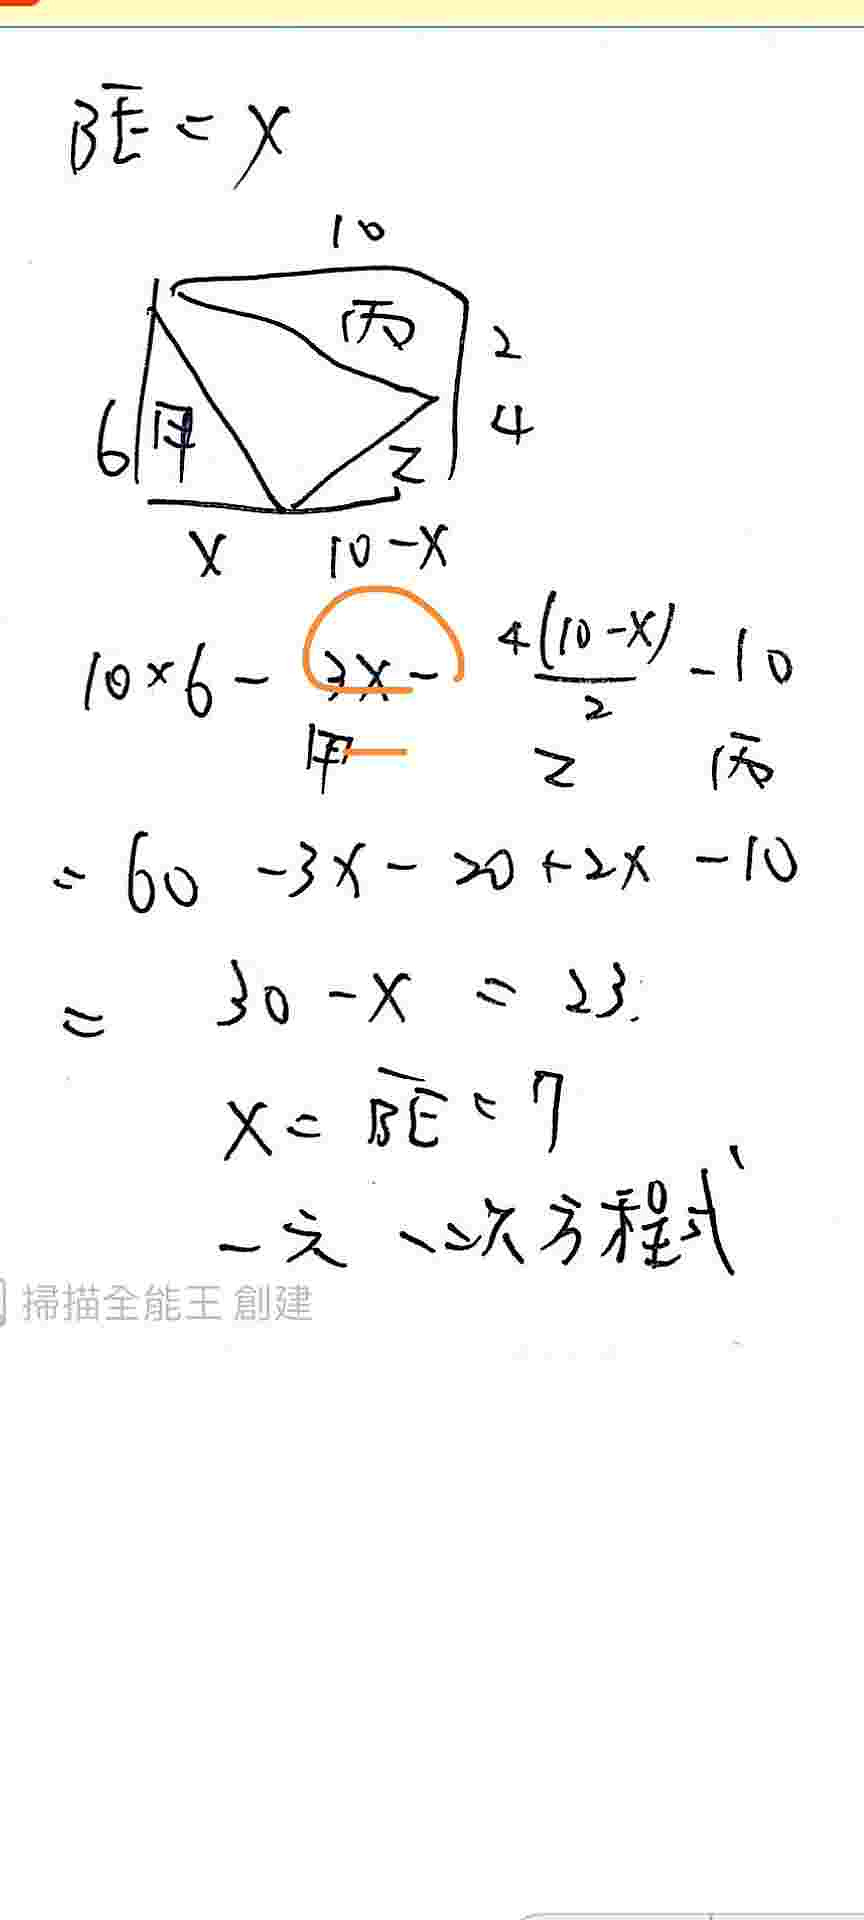 BE = x
10
丙
2
6 甲
4
乙
x 10-x
10×6 - 3x - 4(10-x)/2 - 10
甲 乙 丙
= 60 -3x - 20 + 2x - 10
= 30 - x = 23.
x = BE = 7
一元一次方程式
掃描全能王 創建